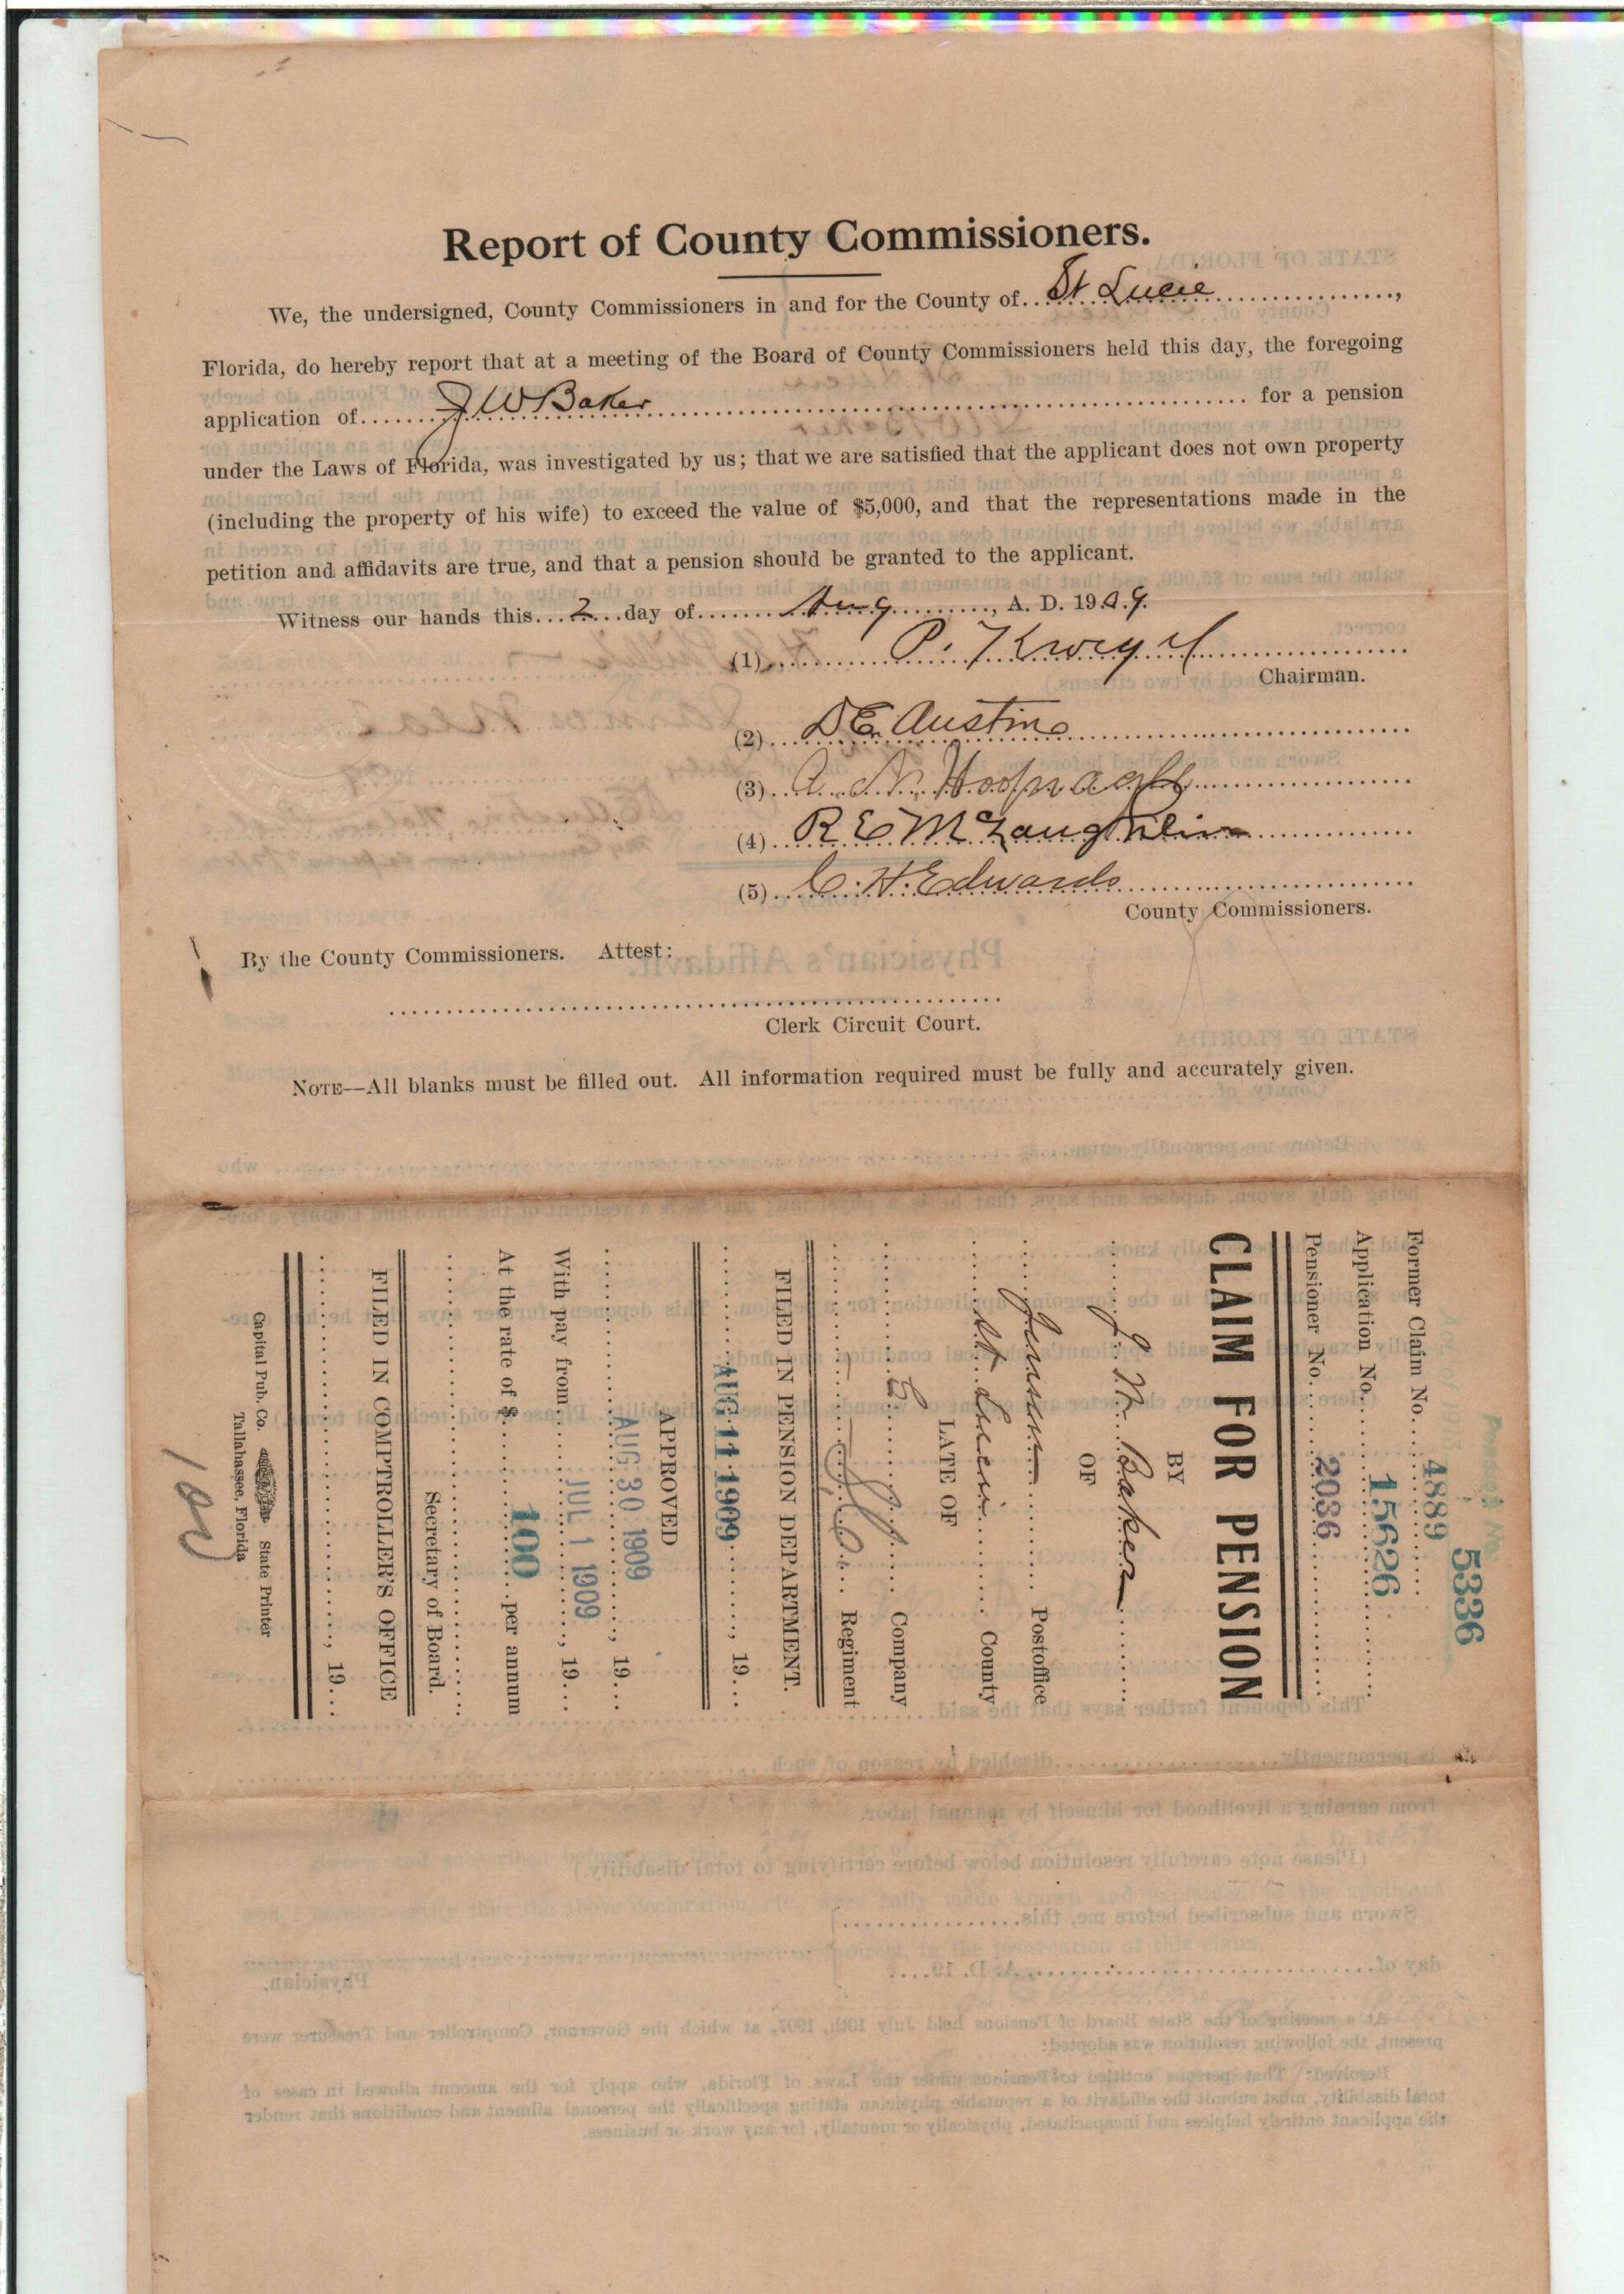 Report of County Commissioners.
We, the undersigned, County Commissioners in and for the County of..St Lucie..................,
Florida, do hereby report that at a meeting of the Board of County Commissioners held this day, the foregoing
application of......J W Baker.................................................... for a pension
under the Laws of Florida, was investigated by us; that we are satisfied that the applicant does not own property
(including the property of his wife) to exceed the value of $5,000, and that the representations made in the
petition and affidavits are true, and that a pension should be granted to the applicant.
Witness our hands this...2...day of.......Aug.........., A. D. 1909.
(1)..........P.
Chairman.
(2)....D E Austin
(3)...A. N.
(4)...R E McLaughlin
(5)...C. H. Edwards
County Commissioners.
By the County Commissioners. Attest:
Clerk Circuit Court.
NOTE—All blanks must be filled out. All information required must be fully and accurately given.
5336
Former Claim No....4889
Application No......15626
Pensioner No........2036
CLAIM FOR PENSION
BY
J. W. Baker
OF
Postoffice
St Lucie........ County
LATE OF
Company
Regiment
FILED IN PENSION DEPARTMENT.
AUG 11 1909........, 19...
APPROVED
AUG 30 1909......, 19...
With pay from......JUL 1 1909......, 19...
At the rate of $........100......per annum
Secretary of Board.
FILED IN COMPTROLLER'S OFFICE
......, 19...
Capital Pub. Co. State Printer
Tallahassee, Florida